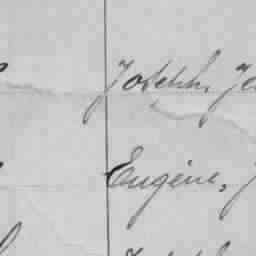 Joseph, Jo
Eugène, J